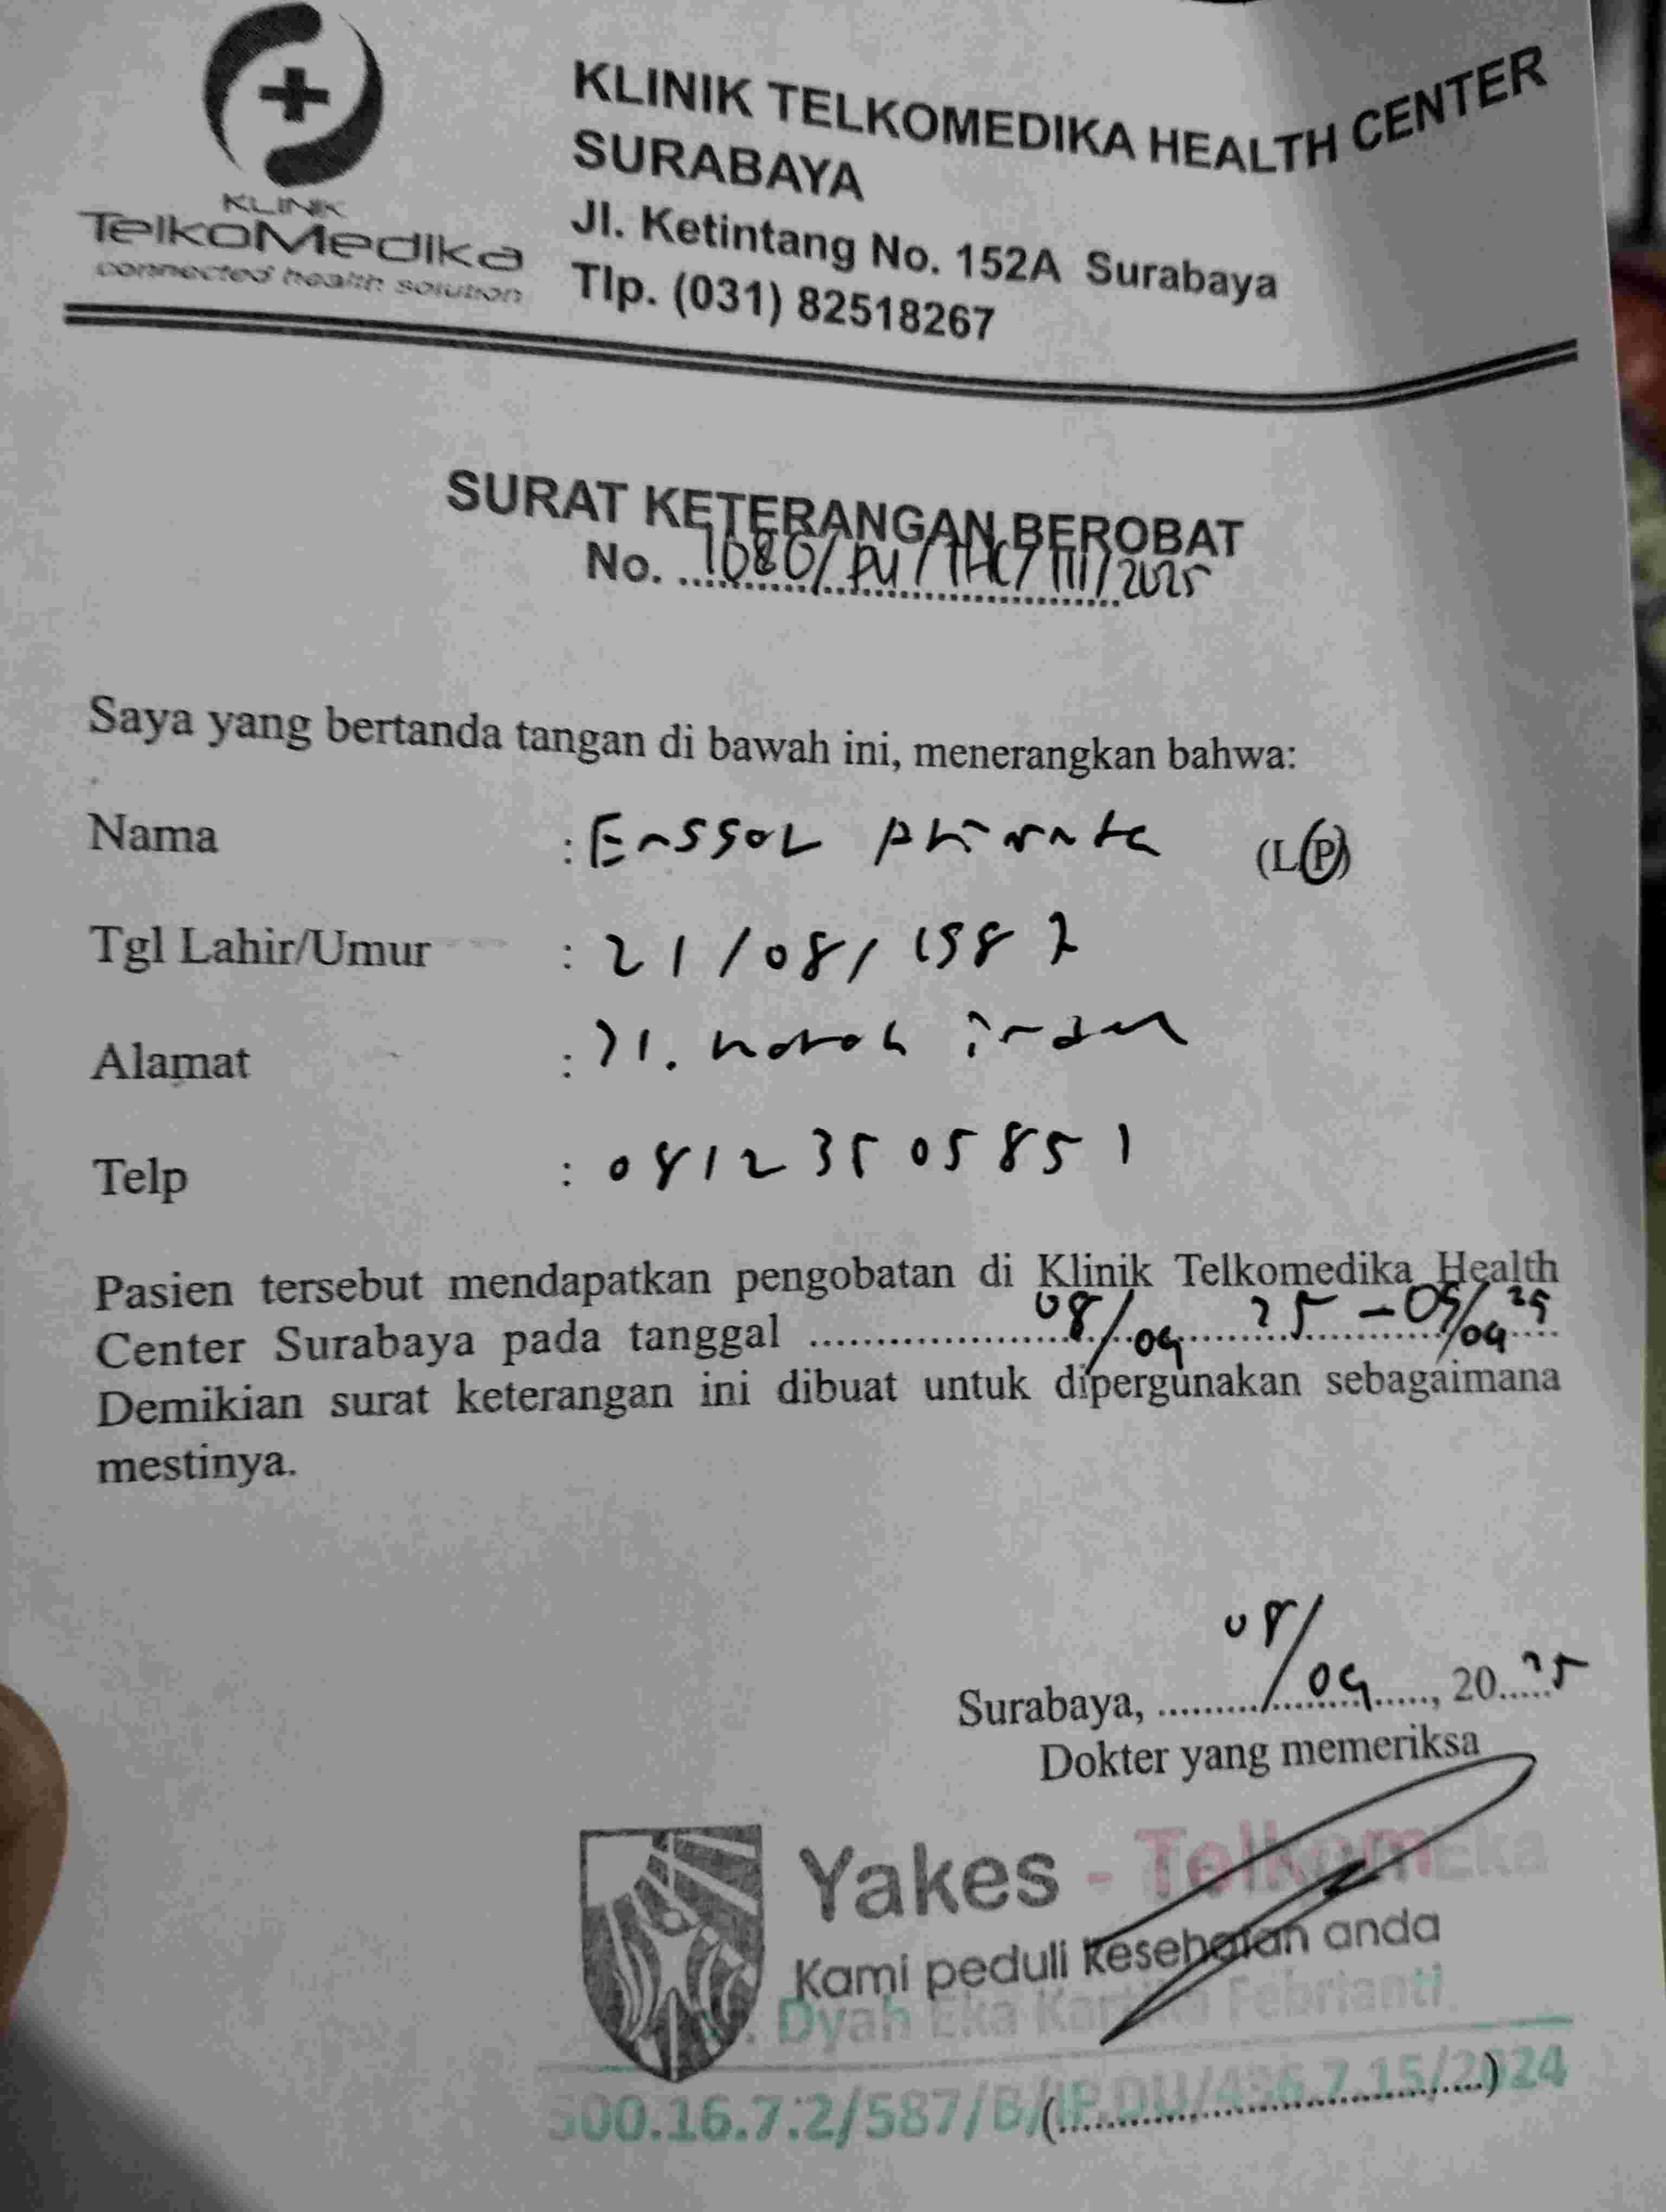 KLINIK
TelkoMedika
connected health solution
KLINIK TELKOMEDIKA HEALTH CENTER
SURABAYA
Jl. Ketintang No. 152A Surabaya
Tlp. (031) 82518267
SURAT KETERANGAN BEROBAT
No. 1080/PU/THC/III/2025
Saya yang bertanda tangan di bawah ini, menerangkan bahwa:
Nama : (L/P)
Tgl Lahir/Umur : 21/08/1987
Alamat : Jl.
Telp : 08123505851
Pasien tersebut mendapatkan pengobatan di Klinik Telkomedika Health
Center Surabaya pada tanggal 08/09 25 - 09/09 25
Demikian surat keterangan ini dibuat untuk dipergunakan sebagaimana
mestinya.
Surabaya, 08/09, 2025
Dokter yang memeriksa
Yakes - Telkom Eka
Kami peduli kesehatan anda
Dyah Eka Kartika Febrianti
500.16.7.2/587/B/IP.DU/436.7.15/2024
(..............................)